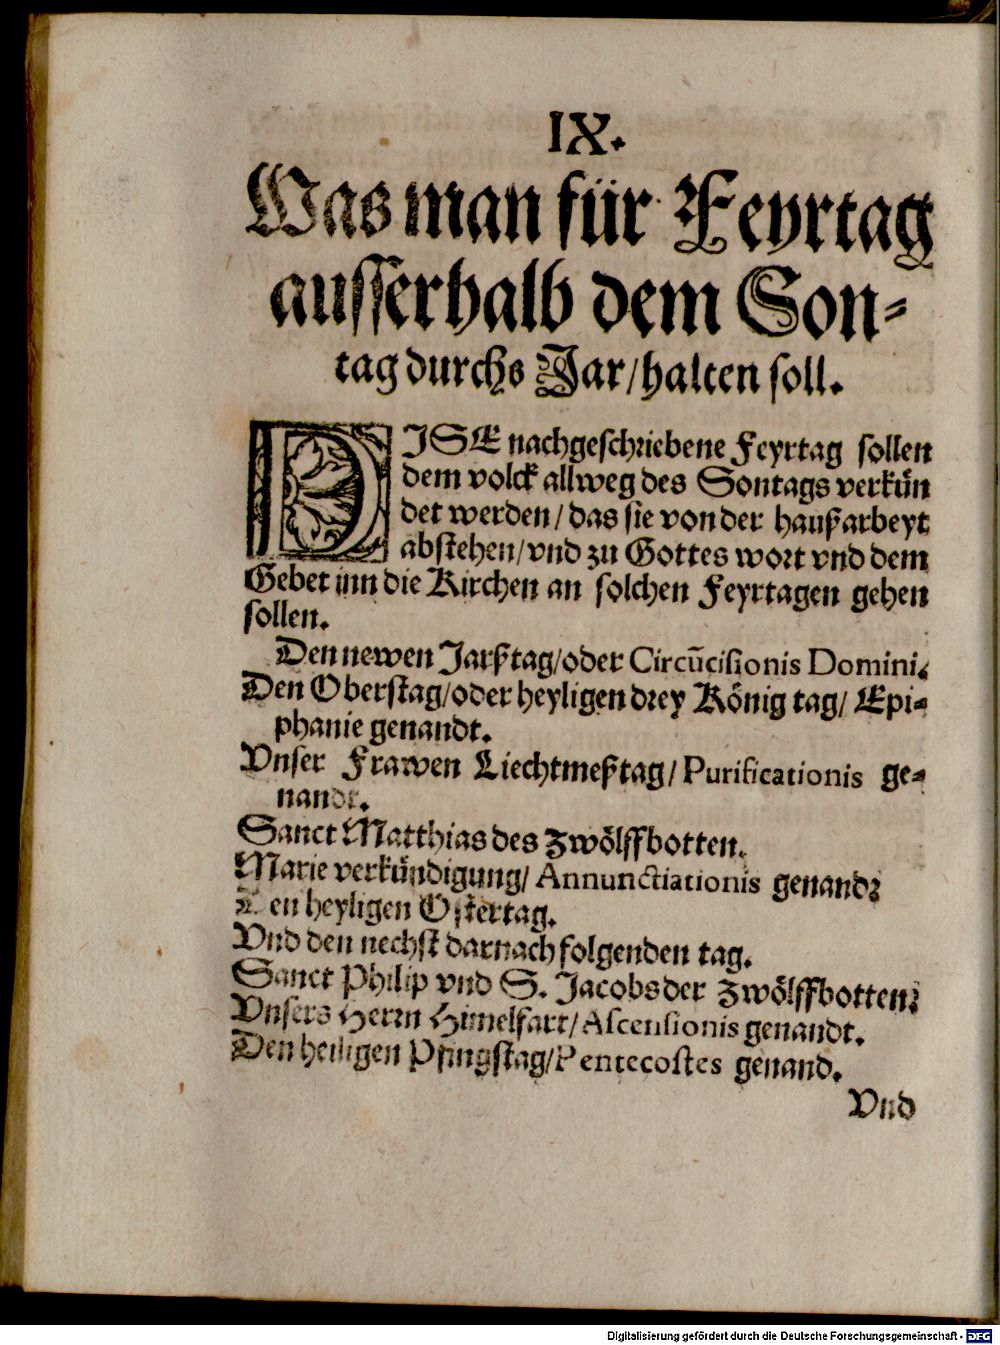 IX.
Was man für Feyrtag
ausserhalb dem Son-
tag durchs Jar/halten soll.
DISE nachgeschriebene Feyrtag sollen
dem volck allweg des Sontags verkün
det werden/das sie von der haußarbeyt
abstehen/vnd zu Gottes wort vnd dem
Gebet inn die Kirchen an solchen Feyrtagen gehen
sollen.
Den newen Jarßtag/oder Circūcisionis Domini.
Den Oberstag/oder heyligen drey König tag/Epi-
phanie genandt.
Vnser Frawen Liechtmeßtag/Purificationis ge-
nandt.
Sanct Matthias des zwölffbotten.
Marie verkündigung/Annunctiationis genand.
Den heyligen Ostertag.
Vnd den nechst darnach folgenden tag.
Sanct Philip vnd S. Jacobs der zwölffbotten.
Vnsers Herrn Himelfart/Ascensionis genandt.
Den heiligen Pfingstag/Pentecostes genand.
Vnd
Digitalisierung gefördert durch die Deutsche Forschungsgemeinschaft - DFG